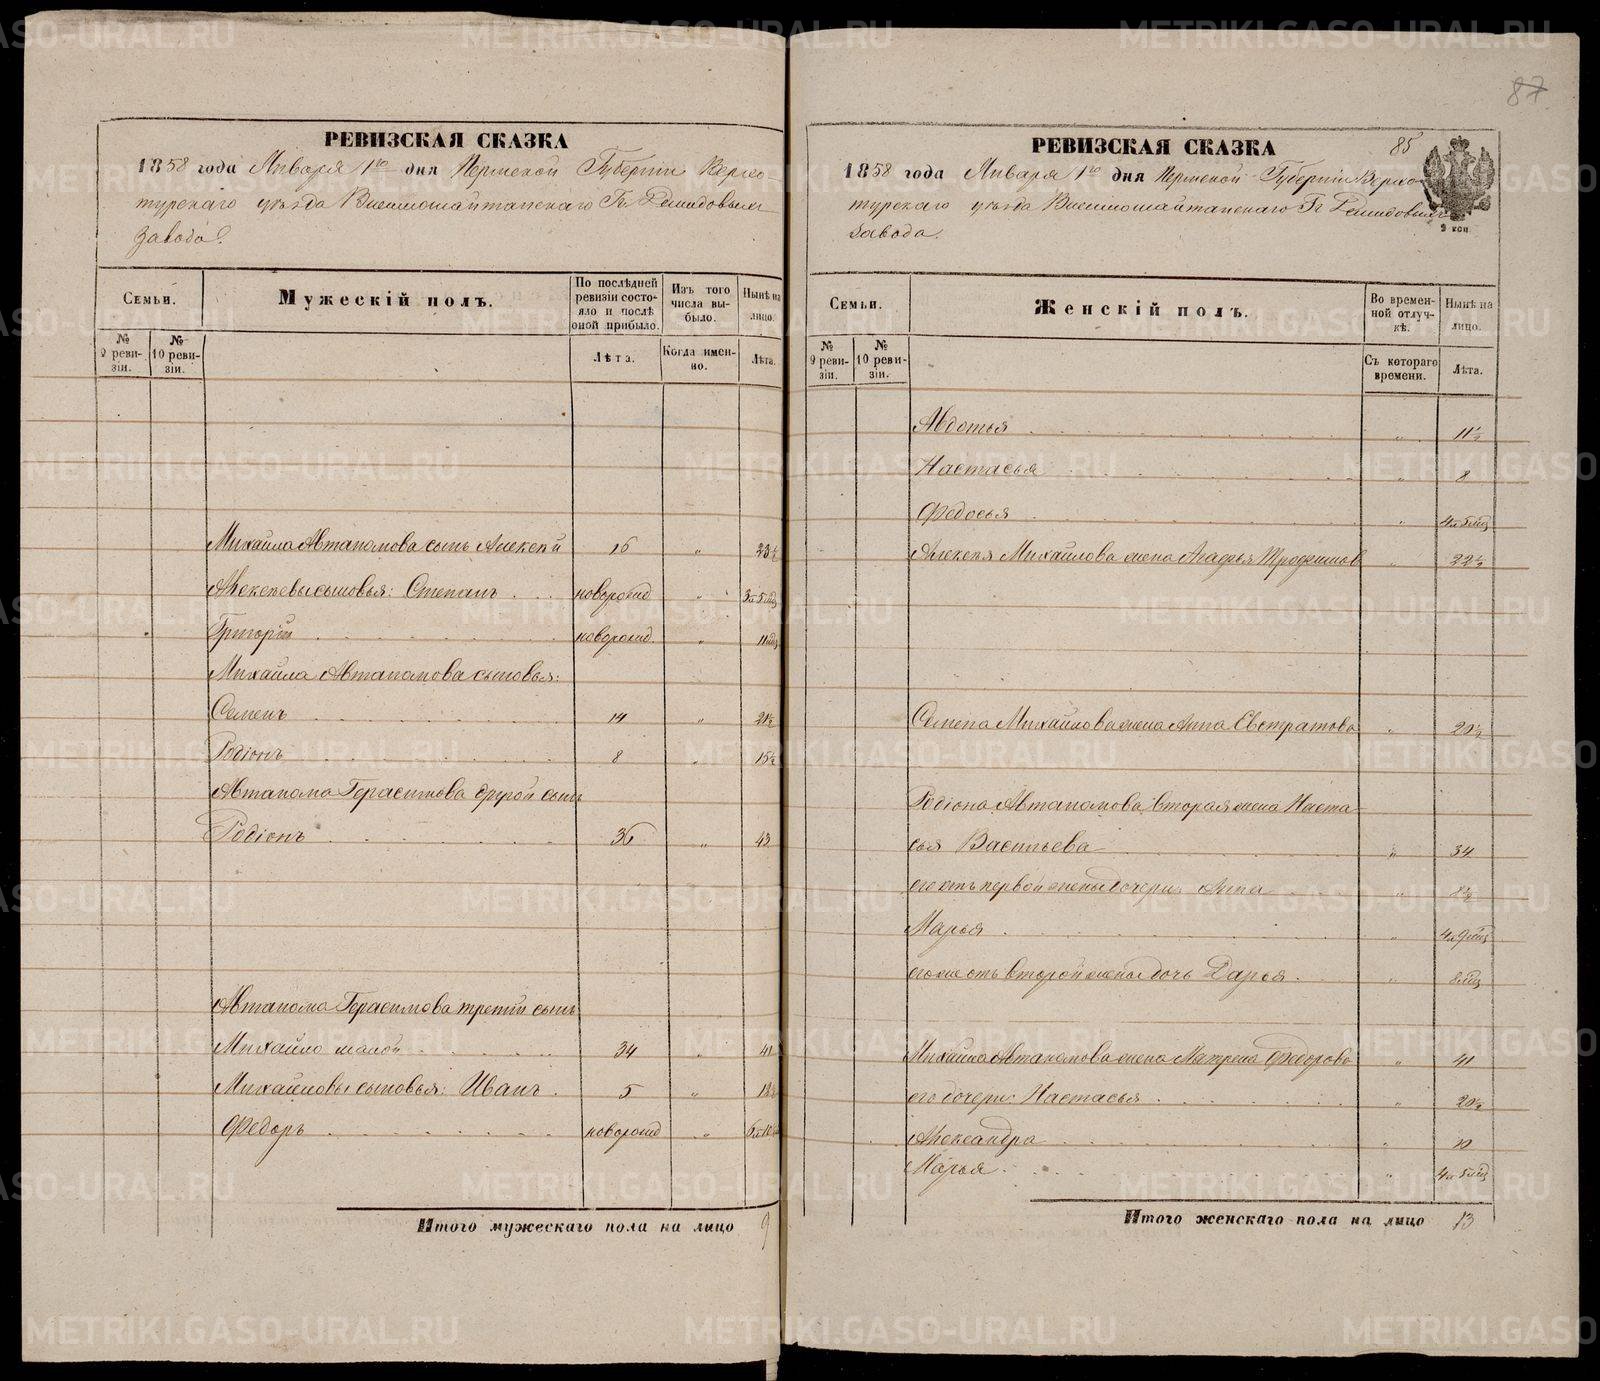 87
РЕВИЗСКАЯ СКАЗКА
1858 года Января 1го дня Пермской Губерніи Верхо-
турскаго уѣзда Висимошайтанскаго Гг Демидовыхъ
завода.
Семьи.
Мужескій полъ.
По послѣдней ревизіи состо-яло и послѣ оной прибыло.
Изъ того числа вы-было.
Нынѣ на лицо.
№ 9 реви-зіи.
№ 10 реви-зіи.
Лѣта.
Когда имен-но.
Лѣта.
Михайла Автаномова сынъ Алексѣй 16 " 23½
Алексѣевы сыновья: Степанъ новорожд " 3л 5 мѣц
Григорій новорожд. " 11 мѣц
Михайла Автаномова сыновья:
Семенъ 14 " 21½
Родіонъ 8 " 15½
Автанома Герасимова другой сынъ
Родіонъ 36 " 43
Автанома Герасимова третій сынъ
Михайло малой 34 " 41
Михайловы сыновья: Иванъ 5 " 12½
Федоръ новорожд "
Итого мужескаго пола на лицо 9
РЕВИЗСКАЯ СКАЗКА
85
1858 года Января 1го дня Пермской Губерніи Верхо-
турскаго уѣзда Висимошайтанскаго Гг Демидовыхъ
завода.
9 коп
Семьи.
Женскій полъ.
Во времен-ной отлуч-кѣ.
Нынѣ на лицо.
№ 9 реви-зіи.
№ 10 реви-зіи.
Съ котораго времени.
Лѣта.
Авдотья " 11½
Настасья " 8
Федосья " 4л 5 мѣц
Алексѣя Михайлова жена Агафья Трофимов " 22½
Семена Михайлова жена Анна Евстратова " 20½
Родіона Автаномова вторая жена Наста-
сья Васильева " 34
его отъ первой жены дочери: Анна " 8½
Марья " 4л 9 мѣц
его же отъ второй жены дочь Дарья " 8 мѣц
Михайла Автаномова жена Матрена Федорова " 41
его дочери: Настасья " 20½
Александра " 10
Марья " 4л 5 мѣц
Итого женскаго пола на лицо 13
METRIKI.GASO-URAL.RU